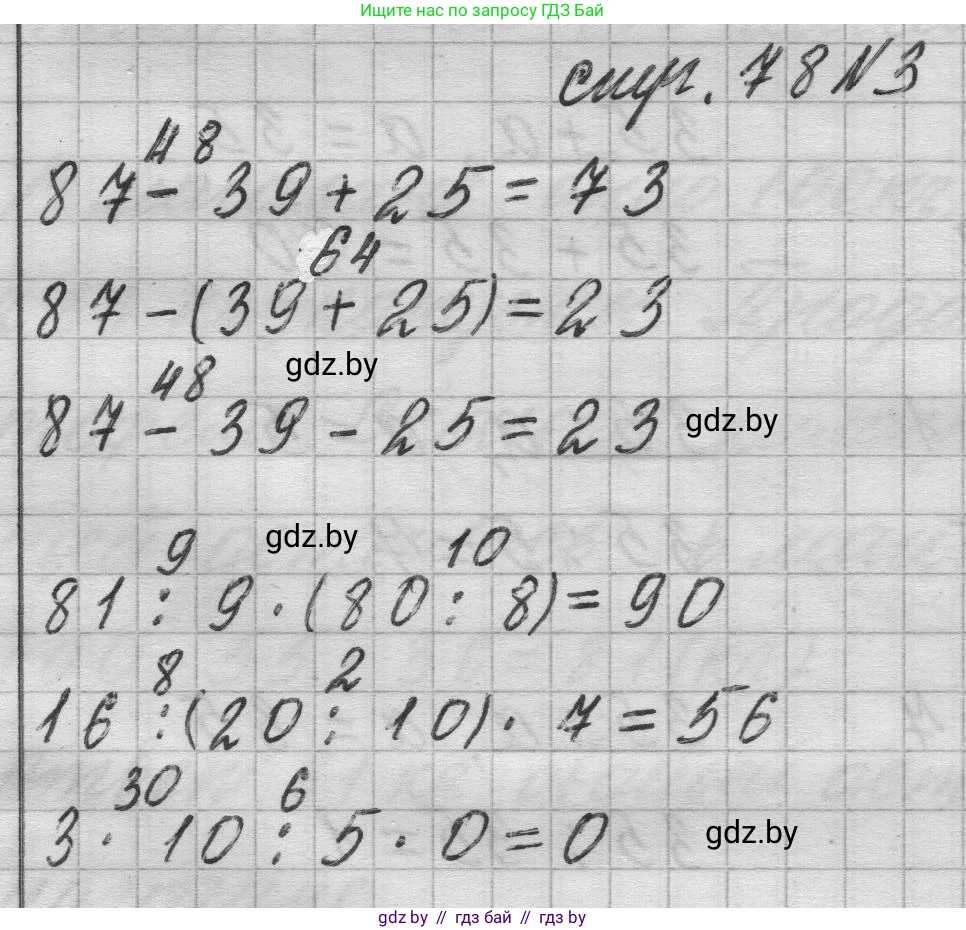 Ищите нас по запросу ГДЗ Бай
стр. 78 №3
48
87 - 39 + 25 = 73
64
87 - (39 + 25) = 23
gdz.by
48
87 - 39 - 25 = 23
gdz.by
gdz.by
9 10
81 : 9 · (80 : 8) = 90
8 2
16 : (20 : 10) · 7 = 56
30 6
3 · 10 : 5 · 0 = 0
gdz.by
gdz.by // гдз бай // гдз by